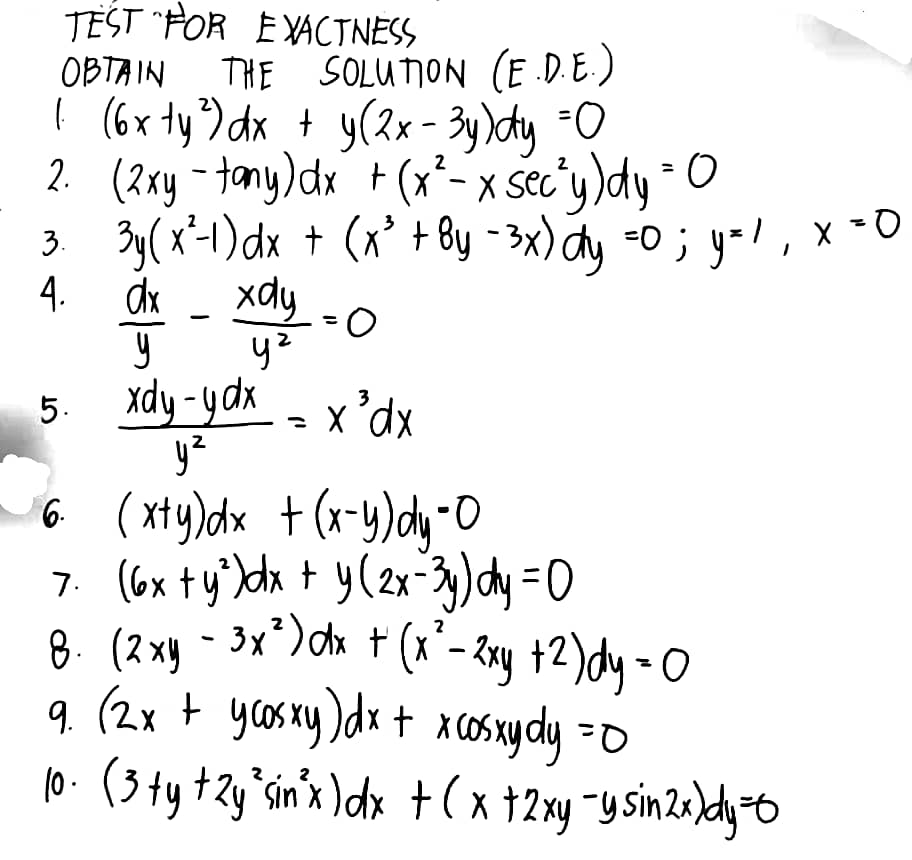 TEST FOR EXACTNESS
OBTAIN THE SOLUTION (E.D.E.)
1. (6x + y²)dx + y(2x - 3y)dy = 0
2. (2xy - tany)dx + (x² - x sec²y)dy = 0
3. 3y(x²-1)dx + (x³ + 8y - 3x)dy = 0 ; y=1 , x = 0
4. dx/y - xdy/y² = 0
5. xdy - ydx/y² = x³dx
6. (x+y)dx + (x-y)dy = 0
7. (6x + y²)dx + y(2x-3y)dy = 0
8. (2xy - 3x²)dx + (x² - 2xy + 2)dy = 0
9. (2x + ycosxy)dx + xcosxydy = 0
10. (3 + y + 2y²sin²x)dx + (x + 2xy - ysin2x)dy = 0